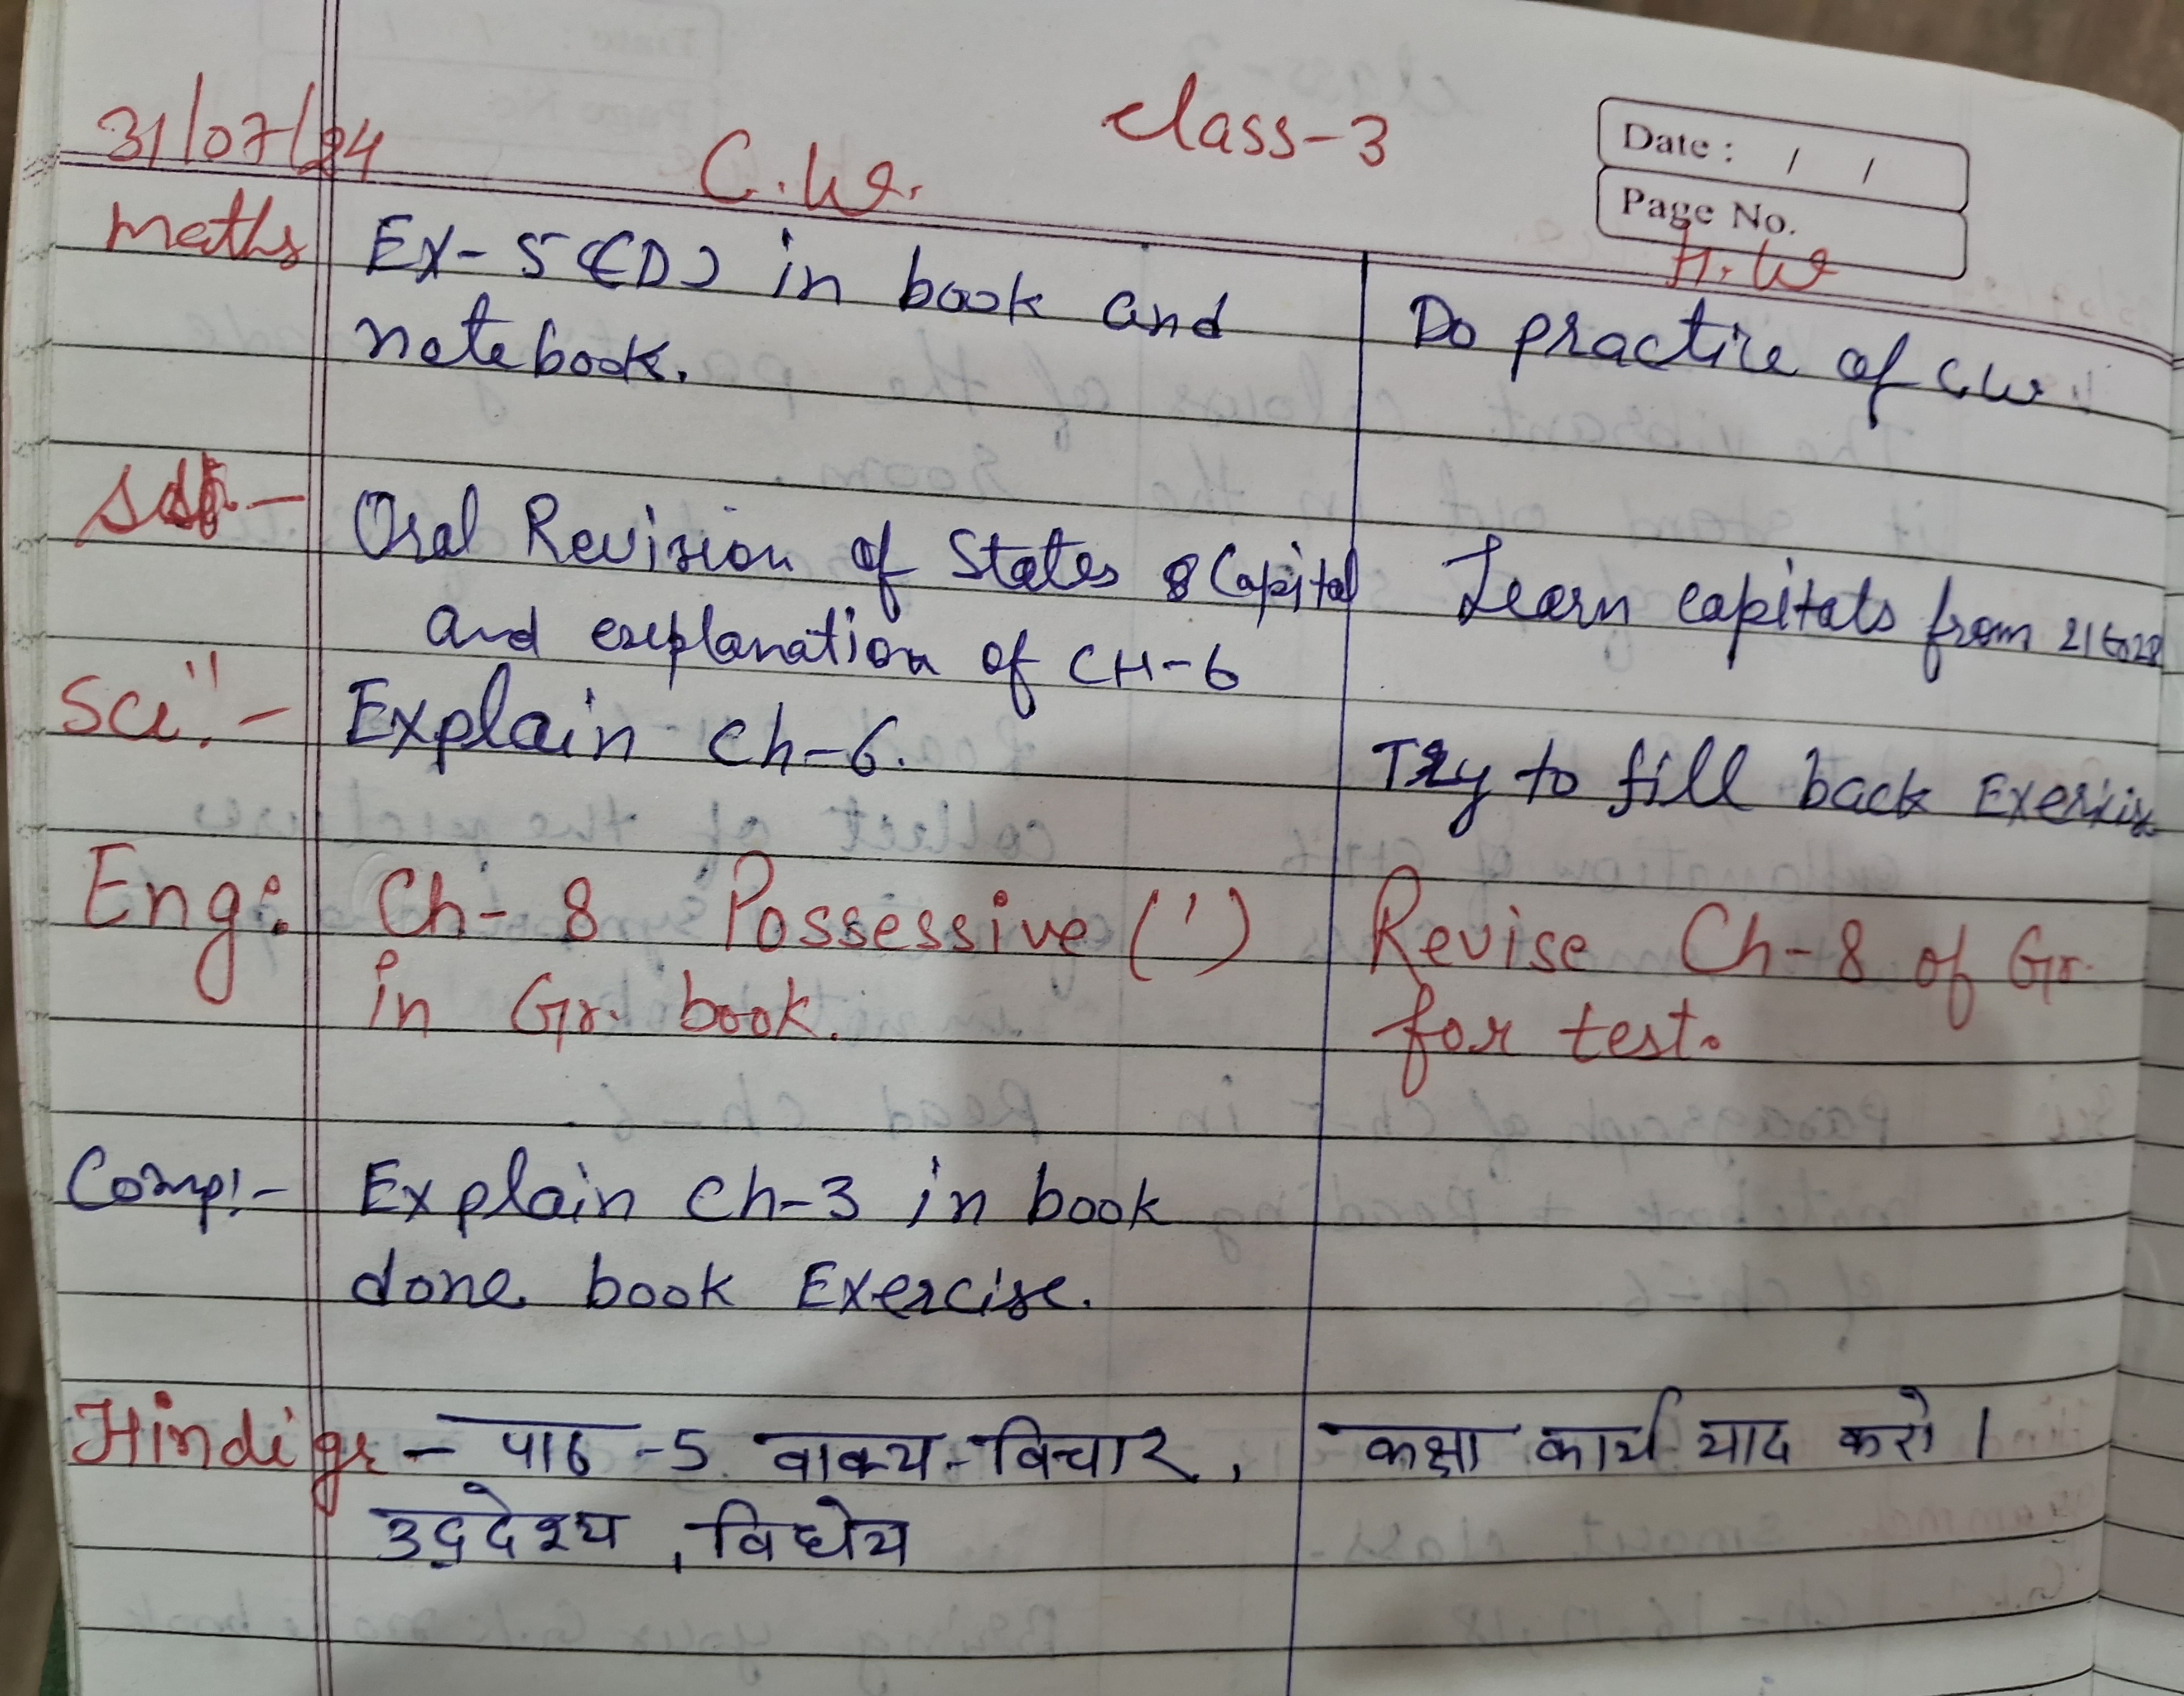 class-3
Date : / /
31/07/24
C.W.
Page No.
H.W
Maths Ex-5(D) in book and
notebook.
Do practice of C.W.
Sst.- Oral Revision of States & Capital
and explanation of CH-6
Learn capitals from 21 to 28
Sci".- Explain ch-6.
Try to fill back Exercise
Eng: Ch-8 Possessive (')
in Gr. book.
Revise Ch-8 of Gr.
for test.
Comp:- Explain Ch-3 in book
done book Exercise.
Hindi gr - पाठ -5 वाक्य-विचार,
उद्देश्य, विधेय
कक्षा कार्य याद करो ।